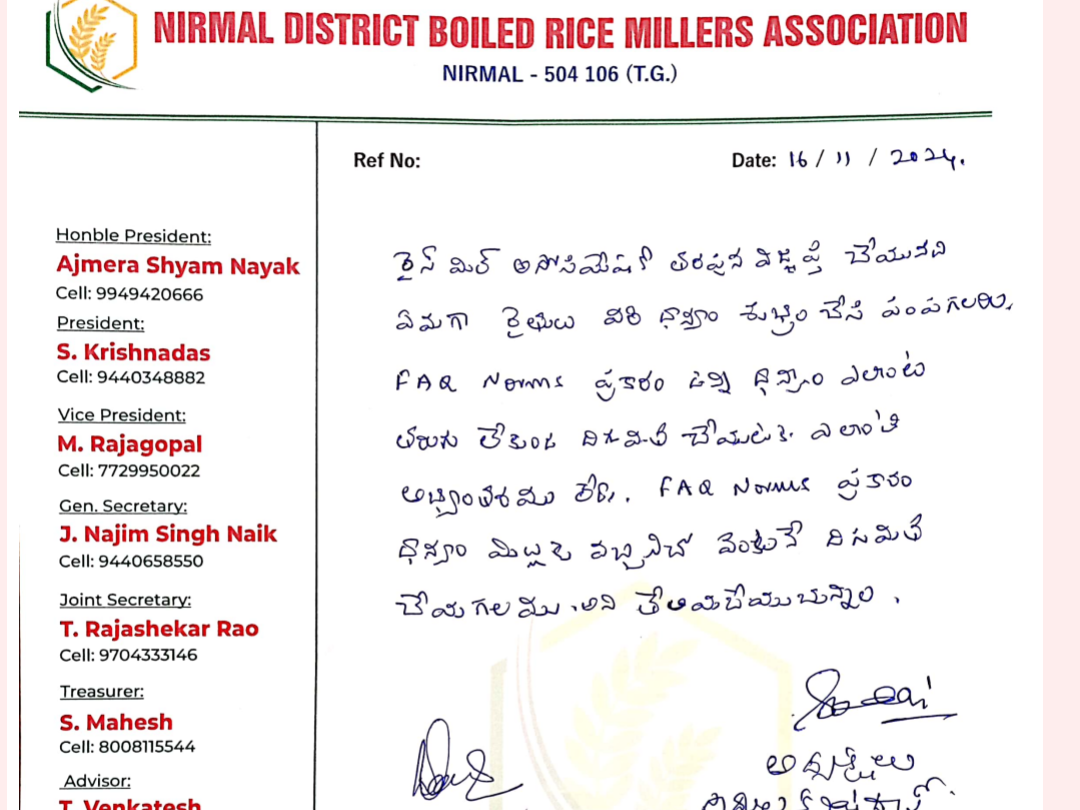 NIRMAL DISTRICT BOILED RICE MILLERS ASSOCIATION
NIRMAL - 504 106 (T.G.)
Ref No:
Date: 16 / 11 / 2024.
Honble President:
Ajmera Shyam Nayak
Cell: 9949420666
President:
S. Krishnadas
Cell: 9440348882
Vice President:
M. Rajagopal
Cell: 7729950022
Gen. Secretary:
J. Najim Singh Naik
Cell: 9440658550
Joint Secretary:
T. Rajashekar Rao
Cell: 9704333146
Treasurer:
S. Mahesh
Cell: 8008115544
Advisor:
T. Venkatesh
రైస్ మిల్ అసోసియేషన్ తరపున విజ్ఞప్తి చేయునది
ఏమగా రైతులు వరి ధాన్యం శుభ్రం చేసి పంపగలరు.
FAQ Norms ప్రకారం ఉన్న ధాన్యం ఎలాంటి
తరుగు లేకుండ దిగుమతి చేయుటకి. ఎలాంటి
అభ్యంతరము లేదు. FAQ Norms ప్రకారం
ధాన్యం మిల్లుకు వచ్చినచో వెంటనే దిగుమతి
చేయగలము. అని తెలియచేయుచున్నాం.
అధ్యక్షులు